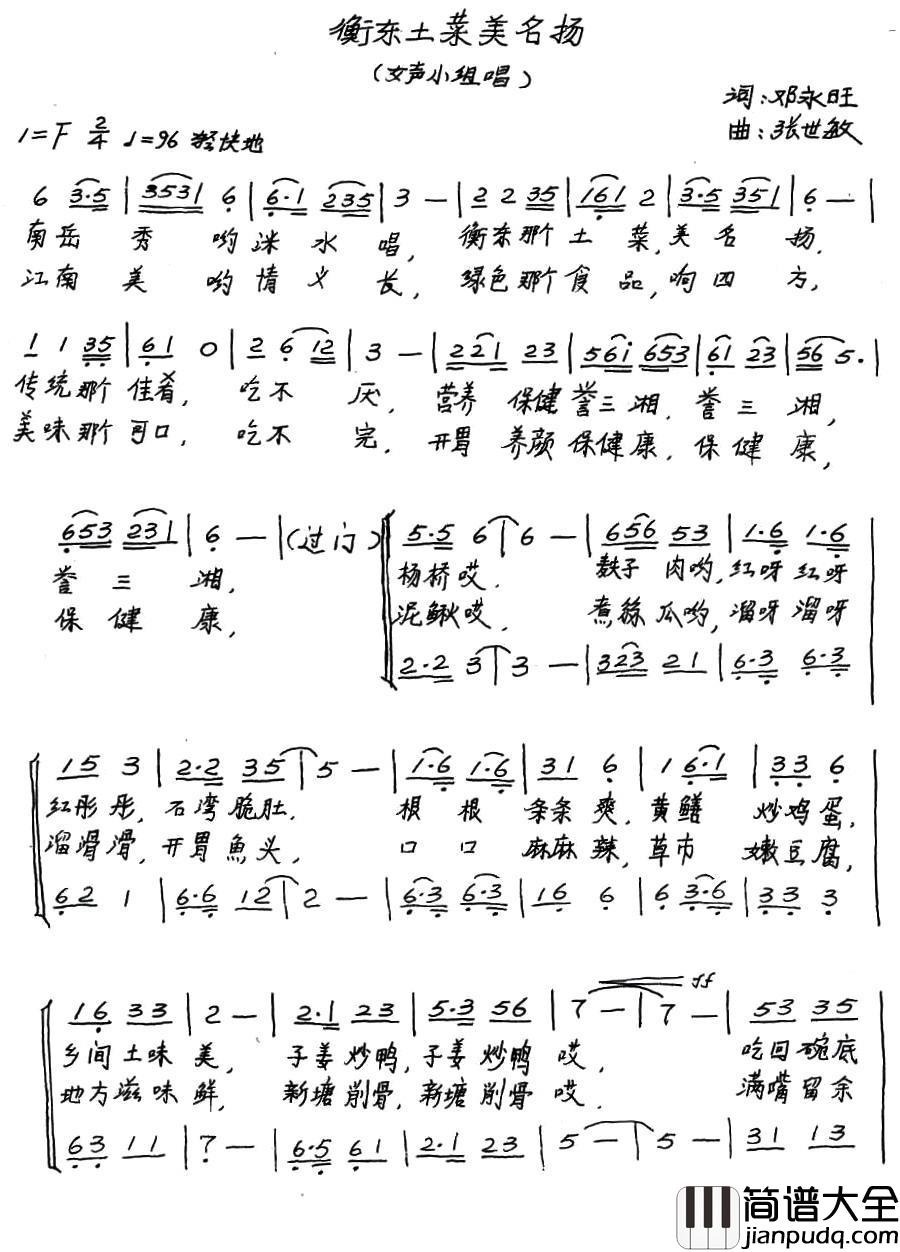 衡东土菜美名扬
(女声小组唱)
词:邓永旺
曲:张世敏
1=F 2/4 ♩=96 轻快地
6 3·5 | 3531 6 | 6·1 235 | 3 — | 2 2 35 | 161 2 | 3·5 351 | 6 — |
南岳 秀 哟 洣 水 唱, 衡东那个 土 菜,美 名 扬,
江南 美 哟 情 义 长, 绿色那个食 品,响 四 方,
1 1 35 | 61 0 | 2 6 12 | 3 — | 221 23 | 561 653 | 61 23 | 56 5· |
传统那个 佳肴, 吃不 厌, 营养 保健誉三湘, 誉 三 湘,
美味那个可口, 吃不 完, 开胃 养颜保健康, 保 健 康,
653 231 | 6 — | (过门)
誉 三 湘,
保 健 康,
5·5 6 | 6 — | 656 53 | 1·6 1·6 |
杨桥哎, 麸子 肉哟,红呀 红呀
泥鳅哎, 煮丝瓜哟,溜呀 溜呀
2·2 3 | 3 — | 323 21 | 6·3 6·3 |
15 3 | 2·2 35 | 5 — | 1·6 1·6 | 31 6 | 1 6·1 | 33 6
红彤彤, 石湾脆肚, 根 根 条条 爽, 黄鳝 炒鸡蛋,
溜滑滑, 开胃魚头, 口 口 麻麻辣, 草市 嫩豆腐,
62 1 | 6·6 12 | 2 — | 6·3 6·3 | 16 6 | 6 3·6 | 33 3
16 33 | 2 — | 2·1 23 | 5·3 56 | 7 — | 7 — | 53 35
ff
乡间土味 美, 子姜炒鸭,子姜 炒鸭 哎, 吃回碗底
地方滋味 鲜, 新塘削骨,新塘削骨 哎, 满嘴留余
63 11 | 7 — | 6·5 61 | 2·1 23 | 5 — | 5 — | 31 13
简谱大全
jianpudq.com